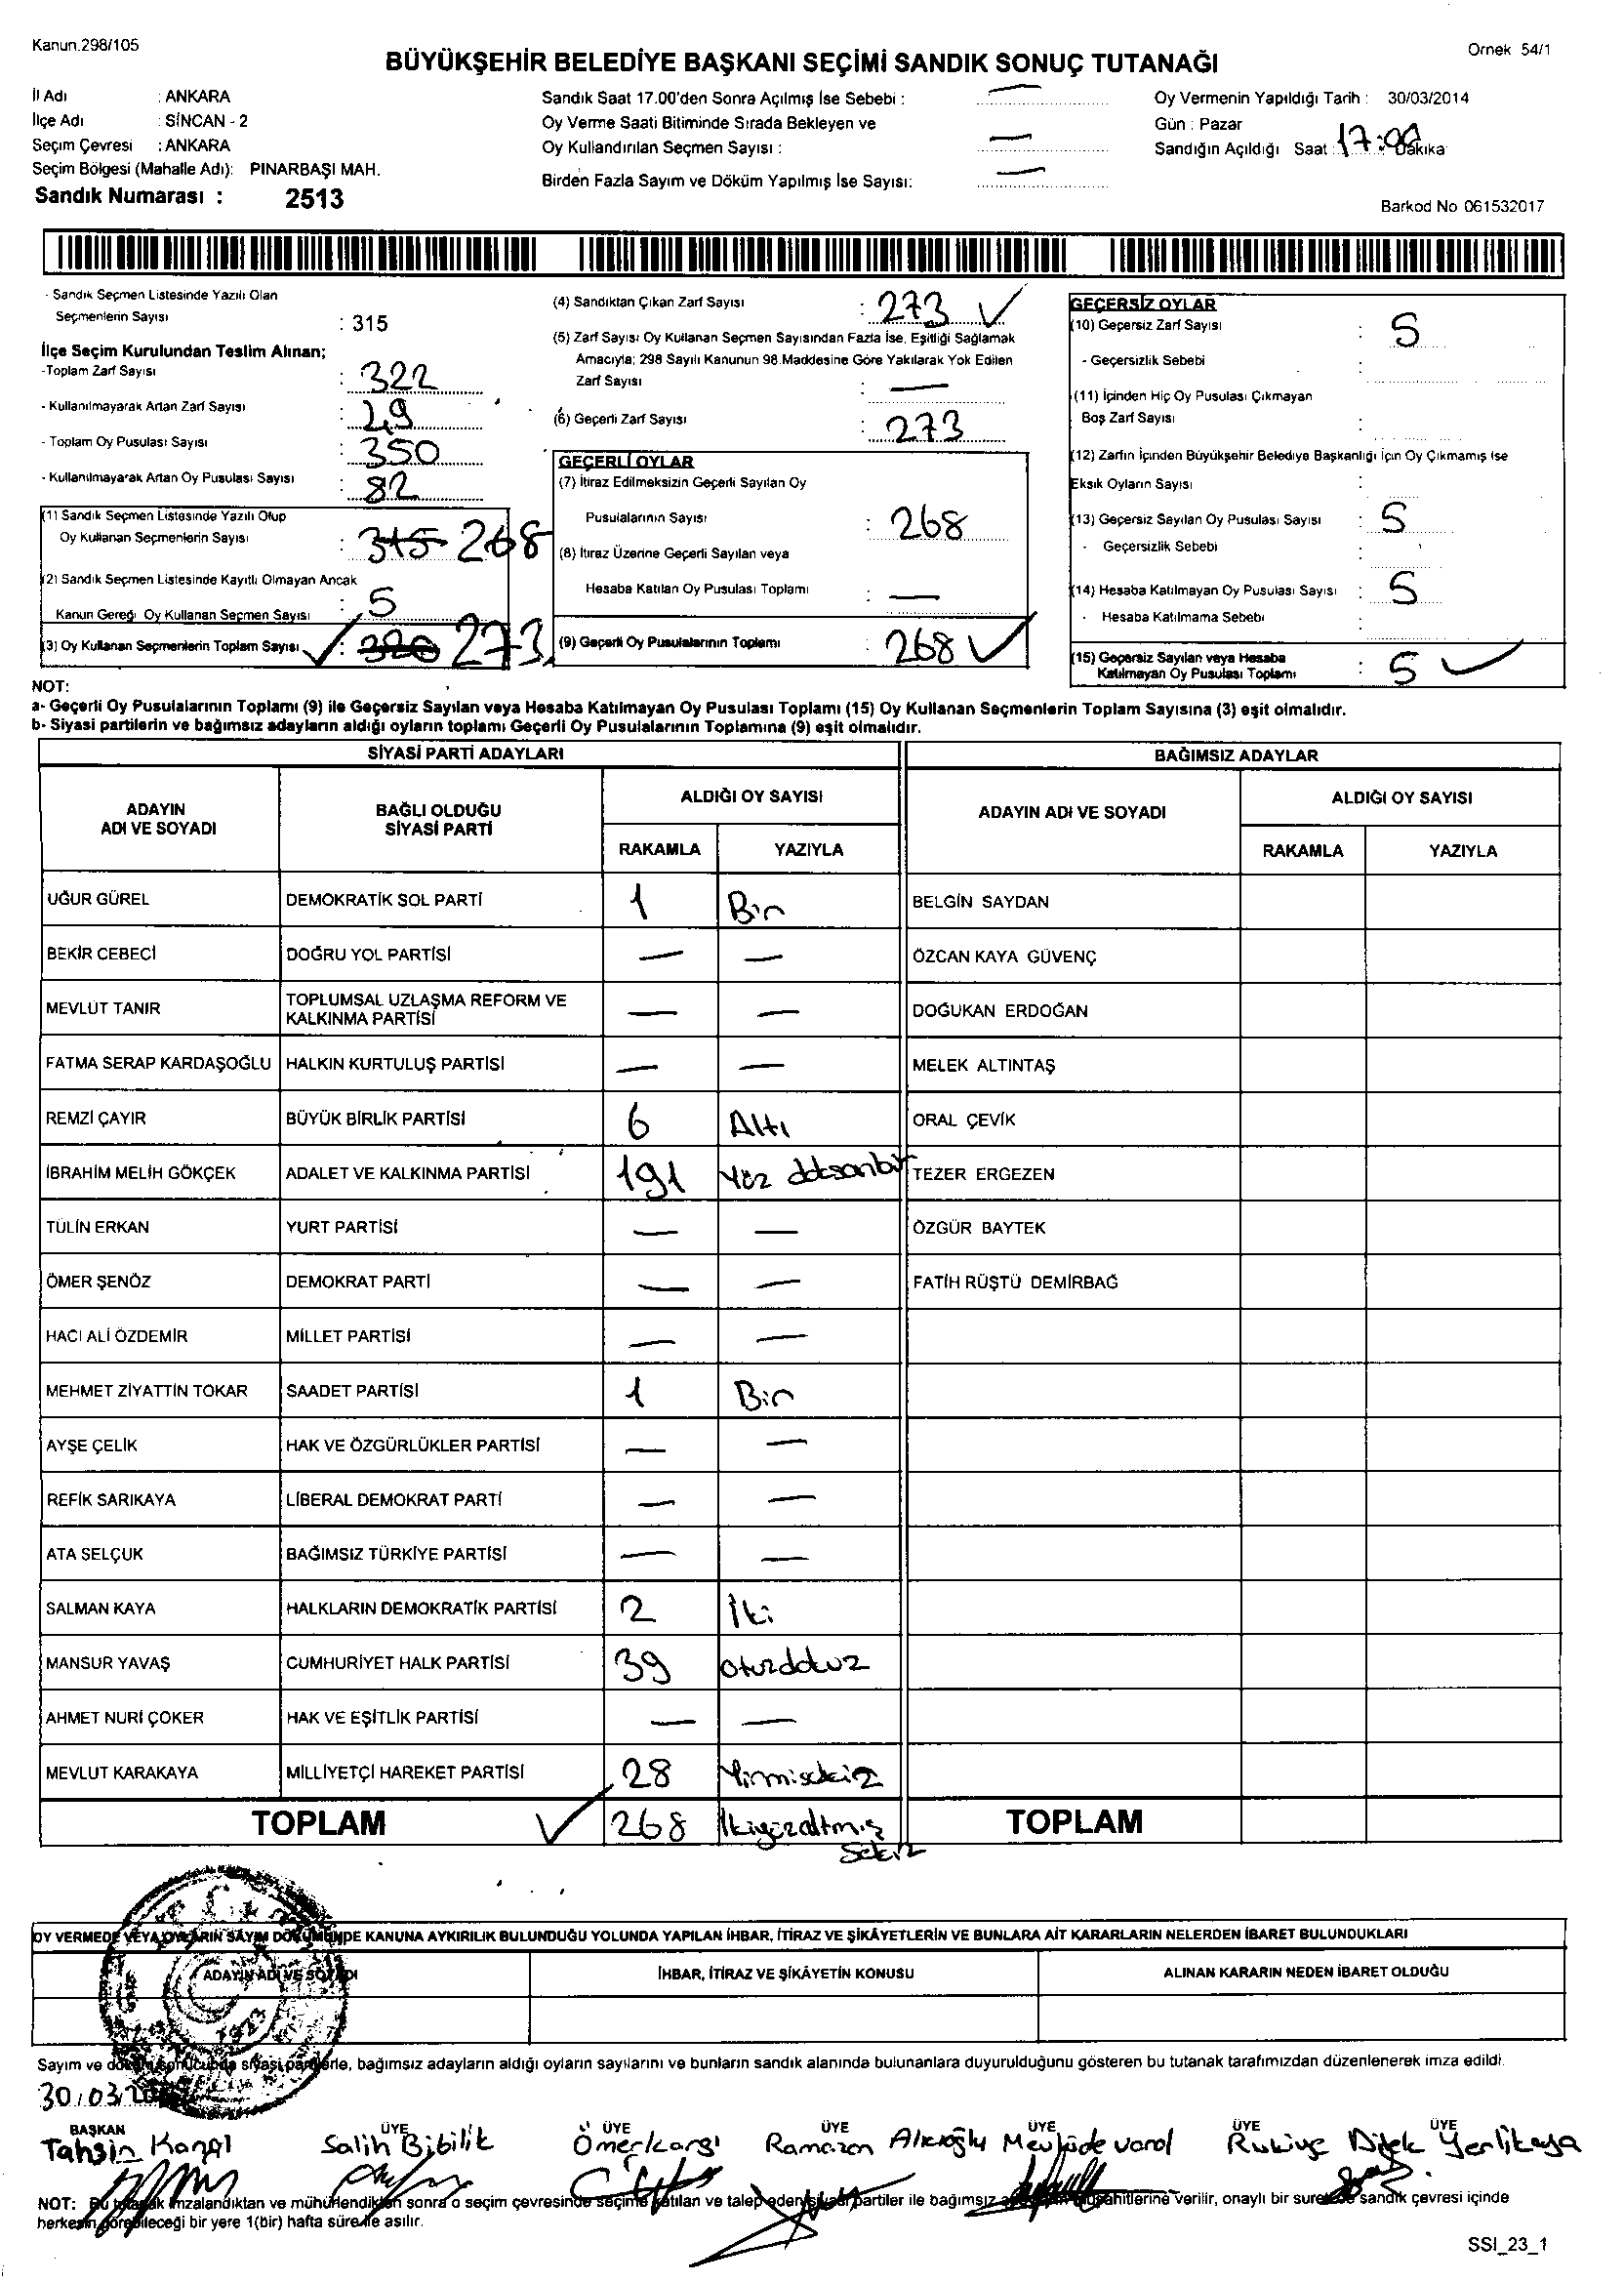 Kanun.298/105
Örnek 54/1
BÜYÜKŞEHİR BELEDİYE BAŞKANI SEÇİMİ SANDIK SONUÇ TUTANAĞI
İl Adı : ANKARA
İlçe Adı : SİNCAN - 2
Seçim Çevresi : ANKARA
Seçim Bölgesi (Mahalle Adı): PINARBAŞI MAH.
Sandık Numarası : 2513
Sandık Saat 17.00'den Sonra Açılmış İse Sebebi : —
Oy Verme Saati Bitiminde Sırada Bekleyen ve
Oy Kullandırılan Seçmen Sayısı : —
Birden Fazla Sayım ve Döküm Yapılmış İse Sayısı: —
Oy Vermenin Yapıldığı Tarih : 30/03/2014
Gün : Pazar
Sandığın Açıldığı Saat : 17:00 Dakika
Barkod No 061532017
- Sandık Seçmen Listesinde Yazılı Olan
Seçmenlerin Sayısı : 315
İlçe Seçim Kurulundan Teslim Alınan;
-Toplam Zarf Sayısı : 322
- Kullanılmayarak Artan Zarf Sayısı :
- Toplam Oy Pusulası Sayısı : 350
- Kullanılmayarak Artan Oy Pusulası Sayısı : 82
(1) Sandık Seçmen Listesinde Yazılı Olup
Oy Kullanan Seçmenlerin Sayısı : 315 268
(2) Sandık Seçmen Listesinde Kayıtlı Olmayan Ancak
Kanun Gereği Oy Kullanan Seçmen Sayısı : 5
(3) Oy Kullanan Seçmenlerin Toplam Sayısı : 320 273
(4) Sandıktan Çıkan Zarf Sayısı : 273
(5) Zarf Sayısı Oy Kullanan Seçmen Sayısından Fazla İse, Eşitliği Sağlamak
Amacıyla; 298 Sayılı Kanunun 98.Maddesine Göre Yakılarak Yok Edilen
Zarf Sayısı : —
(6) Geçerli Zarf Sayısı : 273
GEÇERLİ OYLAR
(7) İtiraz Edilmeksizin Geçerli Sayılan Oy
Pusulalarının Sayısı : 268
(8) İtiraz Üzerine Geçerli Sayılan veya
Hesaba Katılan Oy Pusulası Toplamı : —
(9) Geçerli Oy Pusulalarının Toplamı : 268
GEÇERSİZ OYLAR
(10) Geçersiz Zarf Sayısı : 5
- Geçersizlik Sebebi :
(11) İçinden Hiç Oy Pusulası Çıkmayan
Boş Zarf Sayısı :
(12) Zarfın İçinden Büyükşehir Belediye Başkanlığı İçin Oy Çıkmamış İse
Eksik Oyların Sayısı :
(13) Geçersiz Sayılan Oy Pusulası Sayısı : 5
- Geçersizlik Sebebi :
(14) Hesaba Katılmayan Oy Pusulası Sayısı : 5
- Hesaba Katılmama Sebebi :
(15) Geçersiz Sayılan veya Hesaba
Katılmayan Oy Pusulası Toplamı : 5
NOT:
a- Geçerli Oy Pusulalarının Toplamı (9) ile Geçersiz Sayılan veya Hesaba Katılmayan Oy Pusulası Toplamı (15) Oy Kullanan Seçmenlerin Toplam Sayısına (3) eşit olmalıdır.
b- Siyasi partilerin ve bağımsız adayların aldığı oyların toplamı Geçerli Oy Pusulalarının Toplamına (9) eşit olmalıdır.
SİYASİ PARTİ ADAYLARI
BAĞIMSIZ ADAYLAR
ADAYIN ADI VE SOYADI
BAĞLI OLDUĞU SİYASİ PARTİ
ALDIĞI OY SAYISI
RAKAMLA YAZIYLA
ADAYIN ADI VE SOYADI
ALDIĞI OY SAYISI
RAKAMLA YAZIYLA
UĞUR GÜREL DEMOKRATİK SOL PARTİ 1 Bir BELGİN SAYDAN
BEKİR CEBECİ DOĞRU YOL PARTİSİ — — ÖZCAN KAYA GÜVENÇ
MEVLÜT TANIR TOPLUMSAL UZLAŞMA REFORM VE KALKINMA PARTİSİ — — DOĞUKAN ERDOĞAN
FATMA SERAP KARDAŞOĞLU HALKIN KURTULUŞ PARTİSİ — — MELEK ALTINTAŞ
REMZİ ÇAYIR BÜYÜK BİRLİK PARTİSİ 6 Altı ORAL ÇEVİK
İBRAHİM MELİH GÖKÇEK ADALET VE KALKINMA PARTİSİ 191 Yüz doksanbir TEZER ERGEZEN
TÜLİN ERKAN YURT PARTİSİ — — ÖZGÜR BAYTEK
ÖMER ŞENÖZ DEMOKRAT PARTİ — — FATİH RÜŞTÜ DEMİRBAĞ
HACI ALİ ÖZDEMİR MİLLET PARTİSİ — —
MEHMET ZİYATTİN TOKAR SAADET PARTİSİ 1 Bir
AYŞE ÇELİK HAK VE ÖZGÜRLÜKLER PARTİSİ — —
REFİK SARIKAYA LİBERAL DEMOKRAT PARTİ — —
ATA SELÇUK BAĞIMSIZ TÜRKİYE PARTİSİ — —
SALMAN KAYA HALKLARIN DEMOKRATİK PARTİSİ 2 İki
MANSUR YAVAŞ CUMHURİYET HALK PARTİSİ 39 otuzdokuz
AHMET NURİ ÇOKER HAK VE EŞİTLİK PARTİSİ — —
MEVLUT KARAKAYA MİLLİYETÇİ HAREKET PARTİSİ 28 Yirmisekiz
TOPLAM 268 İkiyüzaltmış sekiz TOPLAM
OY VERMEDE VEYA OYLARIN SAYIM DÖKÜMÜNDE KANUNA AYKIRILIK BULUNDUĞU YOLUNDA YAPILAN İHBAR, İTİRAZ VE ŞİKÂYETLERİN VE BUNLARA AİT KARARLARIN NELERDEN İBARET BULUNDUKLARI
ADAYIN ADI VE SOYADI İHBAR, İTİRAZ VE ŞİKÂYETİN KONUSU ALINAN KARARIN NEDEN İBARET OLDUĞU
Sayım ve döküm sonucunda siyasi partilerle, bağımsız adayların aldığı oyların sayılarını ve bunların sandık alanında bulunanlara duyurulduğunu gösteren bu tutanak tarafımızdan düzenlenerek imza edildi.
30/03/20
BAŞKAN ÜYE ÜYE ÜYE ÜYE ÜYE ÜYE
Tahsin Salih Bibilik Ömer Kargı Ramazan Varol Rukiye Dilek Yerlikaya
NOT: Bu tutanak imzalandıktan ve mühürlendikten sonra o seçim çevresinde seçime katılan ve talep eden siyasi partiler ile bağımsız müşahitlerine verilir, onaylı bir sureti de sandık çevresi içinde
herkesin görebileceği bir yere 1(bir) hafta süre ile asılır.
SSI_23_1